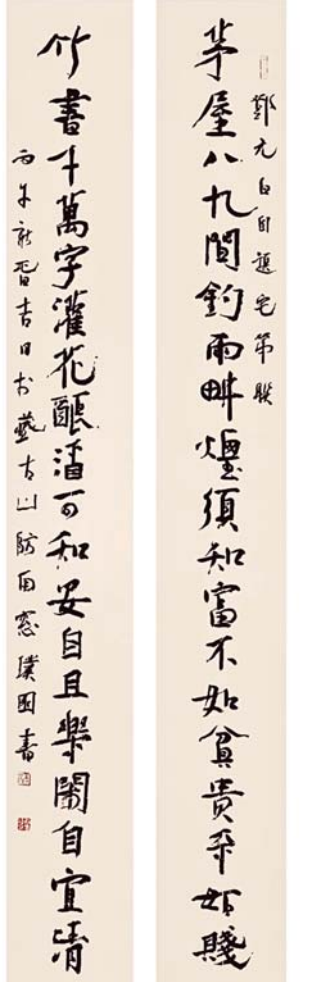 鄭元白自題宅第聯
茅屋八九間釣雨畊煙須知富不如貧貴不如賤
竹書千萬字灌花釀酒可知安自且樂閑自宜清
丙午新春吉日於藝古山房南窗璞園書